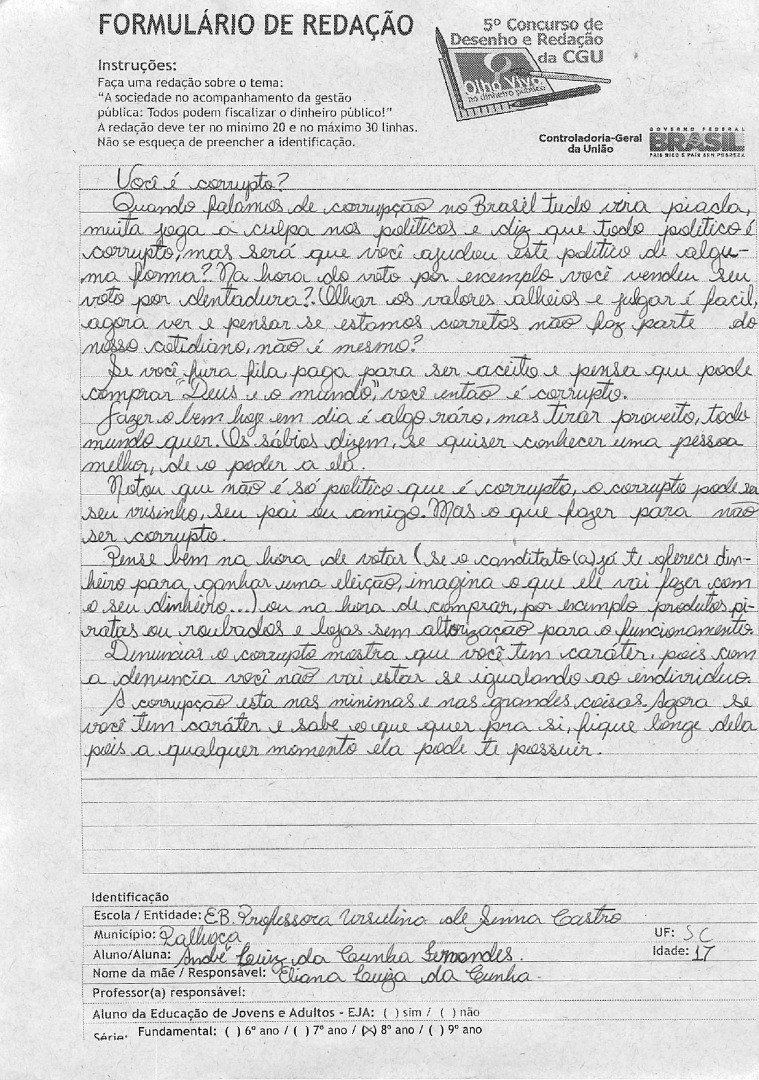 FORMULÁRIO DE REDAÇÃO
5º Concurso de
Desenho e Redação
da CGU
Olho Vivo
no dinheiro público
Instruções:
Faça uma redação sobre o tema:
“A sociedade no acompanhamento da gestão
pública: Todos podem fiscalizar o dinheiro público!”
A redação deve ter no mínimo 20 e no máximo 30 linhas.
Não se esqueça de preencher a identificação.
Controladoria-Geral
da União
GOVERNO FEDERAL
BRASIL
PAÍS RICO É PAÍS SEM POBREZA
Você é corrupto?
Quando falamos de corrupção no Brasil tudo vira piada,
muita joga a culpa nos políticos e diz que todo político é
corrupto, mas será que você ajudou este político de algu-
ma forma? Na hora do voto por exemplo você vendeu seu
voto por dentadura?. Olhar os valores alheios e julgar é facil,
agora ver e pensar se estamos corretos não faz parte do
nosso cotidiano, não é mesmo?
Se você fura fila paga para ser aceito e pensa que pode
comprar "Deus e o mundo", você então é corrupto.
Fazer o bem hoje em dia é algo ráro, mas tirar proveito, todo
mundo quer. Os sábios dizem, se quiser conhecer uma pessoa
melhor, de o poder a ela.
Notou que não é só político que é corrupto, o corrupto pode ser
seu visinho, seu pai ou amigo. Mas o que fazer para não
ser corrupto.
Pense bem na hora de votar (se o canditato(a) já te oferece din-
heiro para ganhar uma eleição, imagina o que ele vai fazer com
o seu dinheiro...) ou na hora de comprar, por exemplo produtos pi-
ratas ou roubados e lojas sem altorização para o funcionamento.
Denunciar o corrupto mostra que você tem caráter, pois com
a denuncia você não vai estar se igualando ao endividuo.
A corrupção esta nas minimas e nas grandes coisas. Agora se
você tem caráter e sabe o que quer pra si, fique longe dela
pois a qualquer momento ela pode te possuir.
Identificação
Escola / Entidade: EB. Professora Ursulina de Senna Castro
Município: Palhoça UF: SC
Aluno/Aluna: André Luiz da Cunha Fernandes. Idade: 17
Nome da mãe / Responsável: Eliana Louza da Cunha.
Professor(a) responsável:
Aluno da Educação de Jovens e Adultos - EJA: ( ) sim / ( ) não
Série: Fundamental: ( ) 6º ano / ( ) 7º ano / (x) 8º ano / ( ) 9º ano